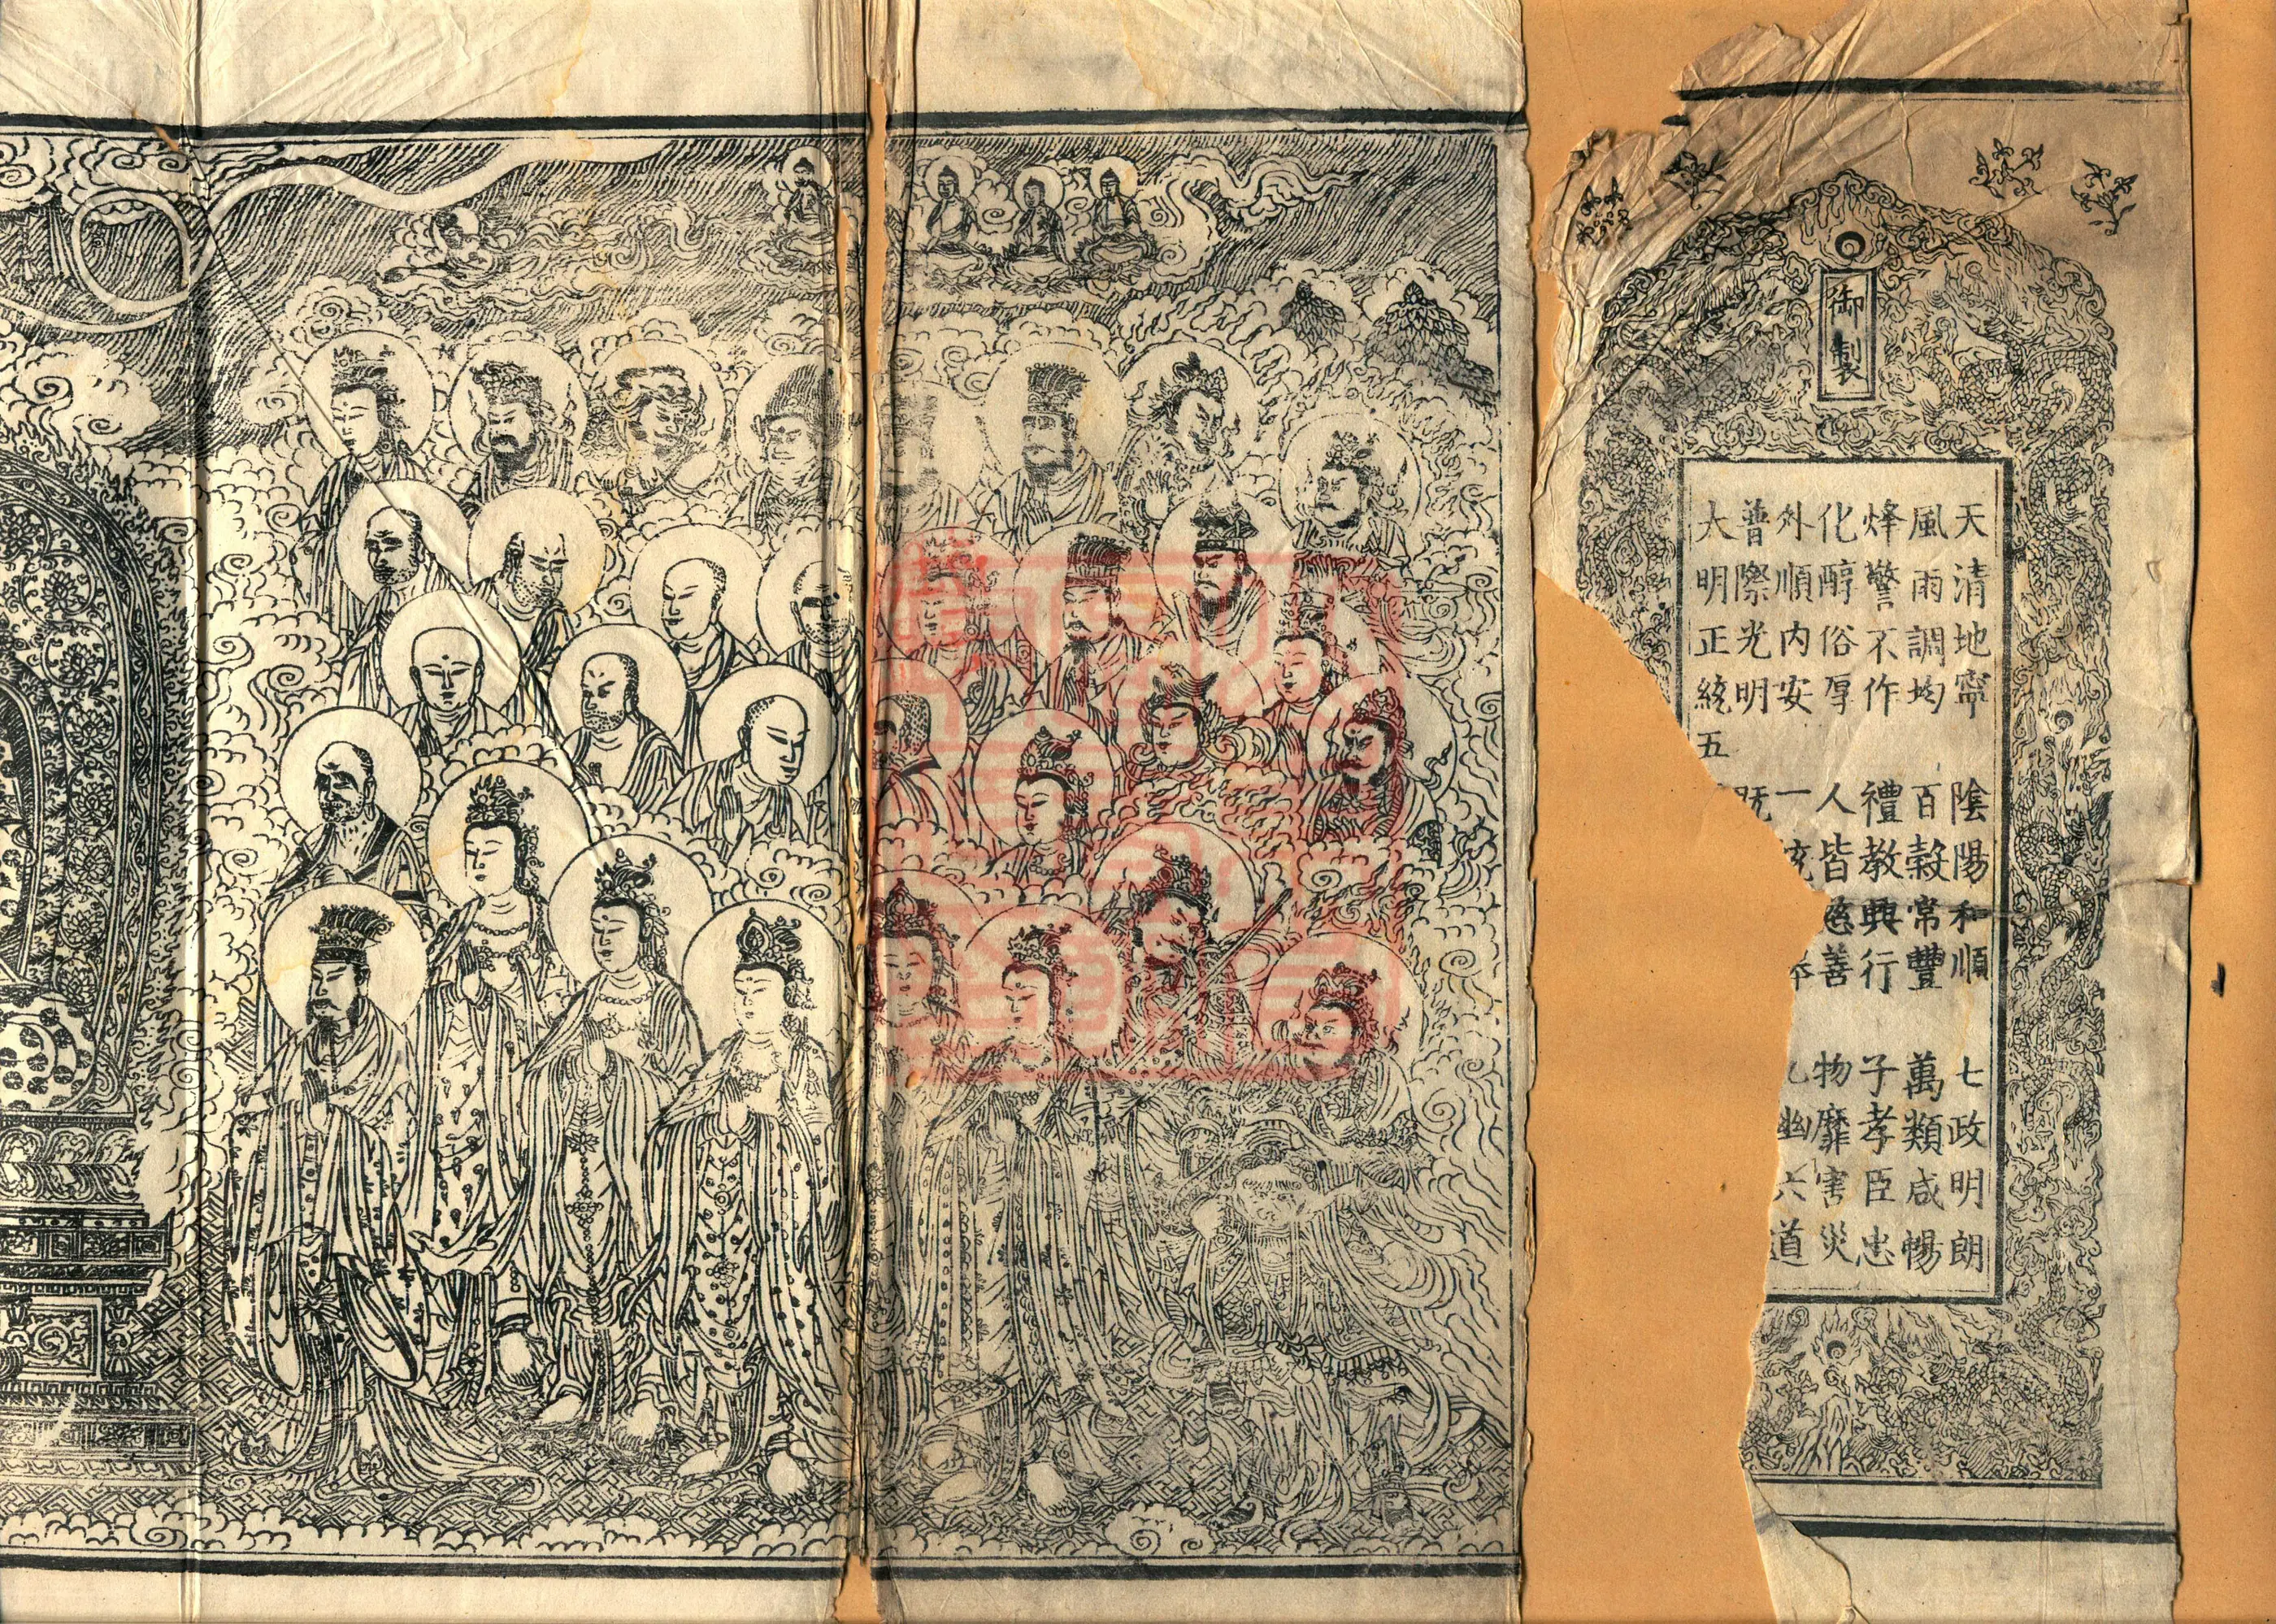 御製
天清地寧 陰陽和順 七政明朗
風雨調均 百穀常豐 萬類咸暢
烽警不作 禮教興行 子孝臣忠
化醇俗厚 人皆慈善 物靡害災
外順内安 一統 幽六道
普際光明 既
大明正統五